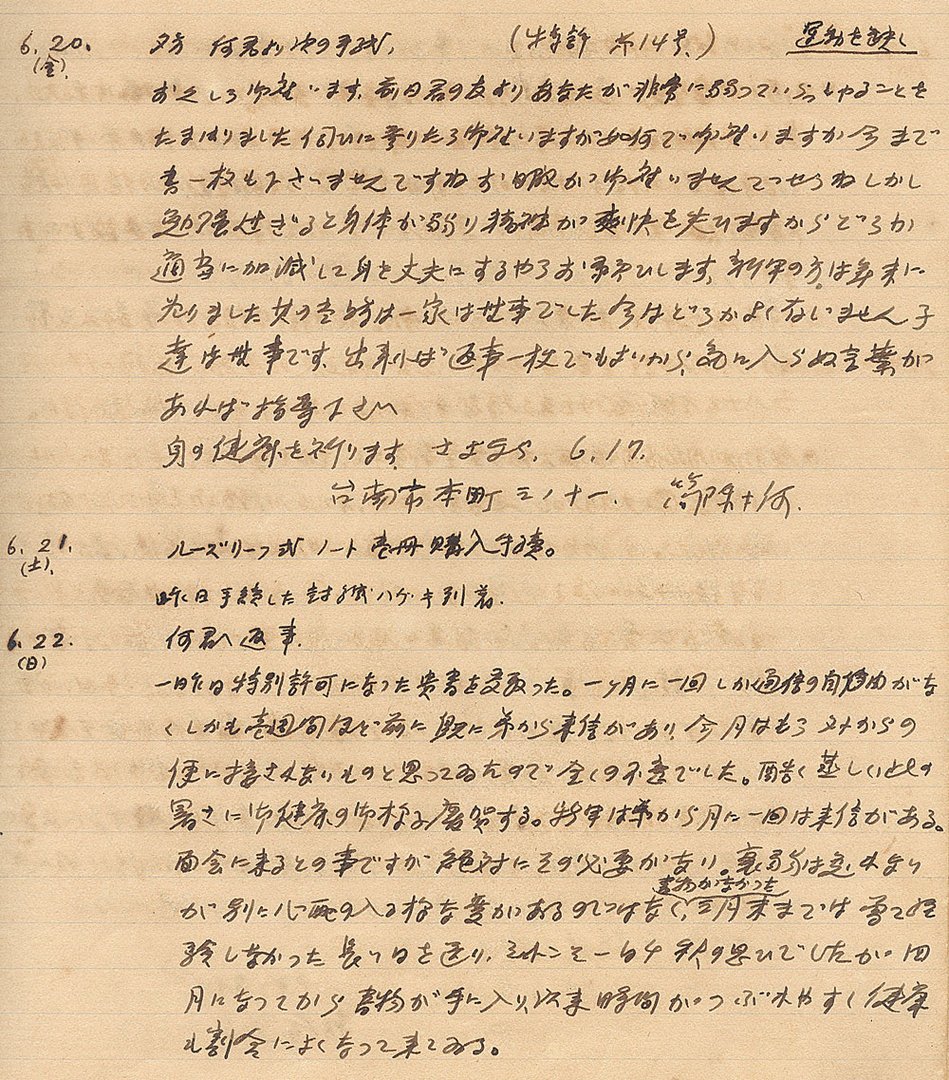 6.20. (金) 夕方 何君より次の手紙、 (特許 第14号) 運動を缺く
おくしろ御座います、前日君の友よりあなたが非常に弱っていらっしゃることを
たまはりました伺ひに参りたう御座いますが如何で御座いますか今まで
書一枚も下さいませんですねお暇が御座いませんでつせうねしかし
勉強せぎると身体が弱り精神が爽快を失ひますからどうか
適当に加減して身を丈夫にするやうお願ひします、新年の方は年末に
なりました其の当時は一家は無事でした今はどうか よくないません子
達は無事です、出来れば返事一枚でもよいから、気に入らぬ言葉が
あれば指導下さい
身の健康を祈ります、さよなら、6.17.
台南市本町三ノ十一、 何
6.21. (土) ルーズリーフ式ノート壱冊購入手続。
昨日手続した封緘ハガキ到着.
6.22. (日) 何君へ返事.
一昨日特別許可になった貴書を受取った。一ヶ月に一回しか通信の自由がな
くしかも壱週間ほど前に既に弟から来信があり、今月はもう外からの
便に接されないものと思ってゐたので全くの不意でした。酷く蒸しい此の
暑さに御健康の御様子慶賀する。 は弟から月に一回は来信がある。
面会に来るとの事ですが絶対にその必要がない。衰弱は 
が別に心配の入る様な量があるのではなく、書物がなかった三月末までは曾て経
験しなかった長い日を送り、それこそ一日千秋の思ひでしたが四
月になってから書物が手に入り以来時間がつぶれやすく健康
も割合によくなって来てゐる。